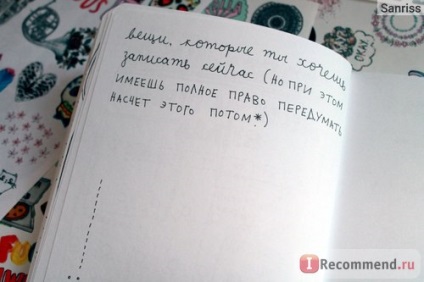 Sanriss
вещи, которые ты хочешь
записать сейчас (но при этом
имеешь полное право передумать
насчет этого потом*)
OKAY
Recommend.ru